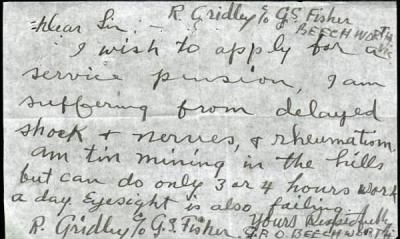 R. Gridley C/o G.S. Fisher
BEECHWORTH
Vic
Dear Sir,
I wish to apply for a
service pension, I am
suffering from delayed
shock & nerves, & rheumatism
am tin mining in the hills
but can do only 3 or 4 hours work
a day. Eyesight is also failing.
Yours Respectfully
R. Gridley C/o G.S. Fisher, P.O. BEECHWORTH